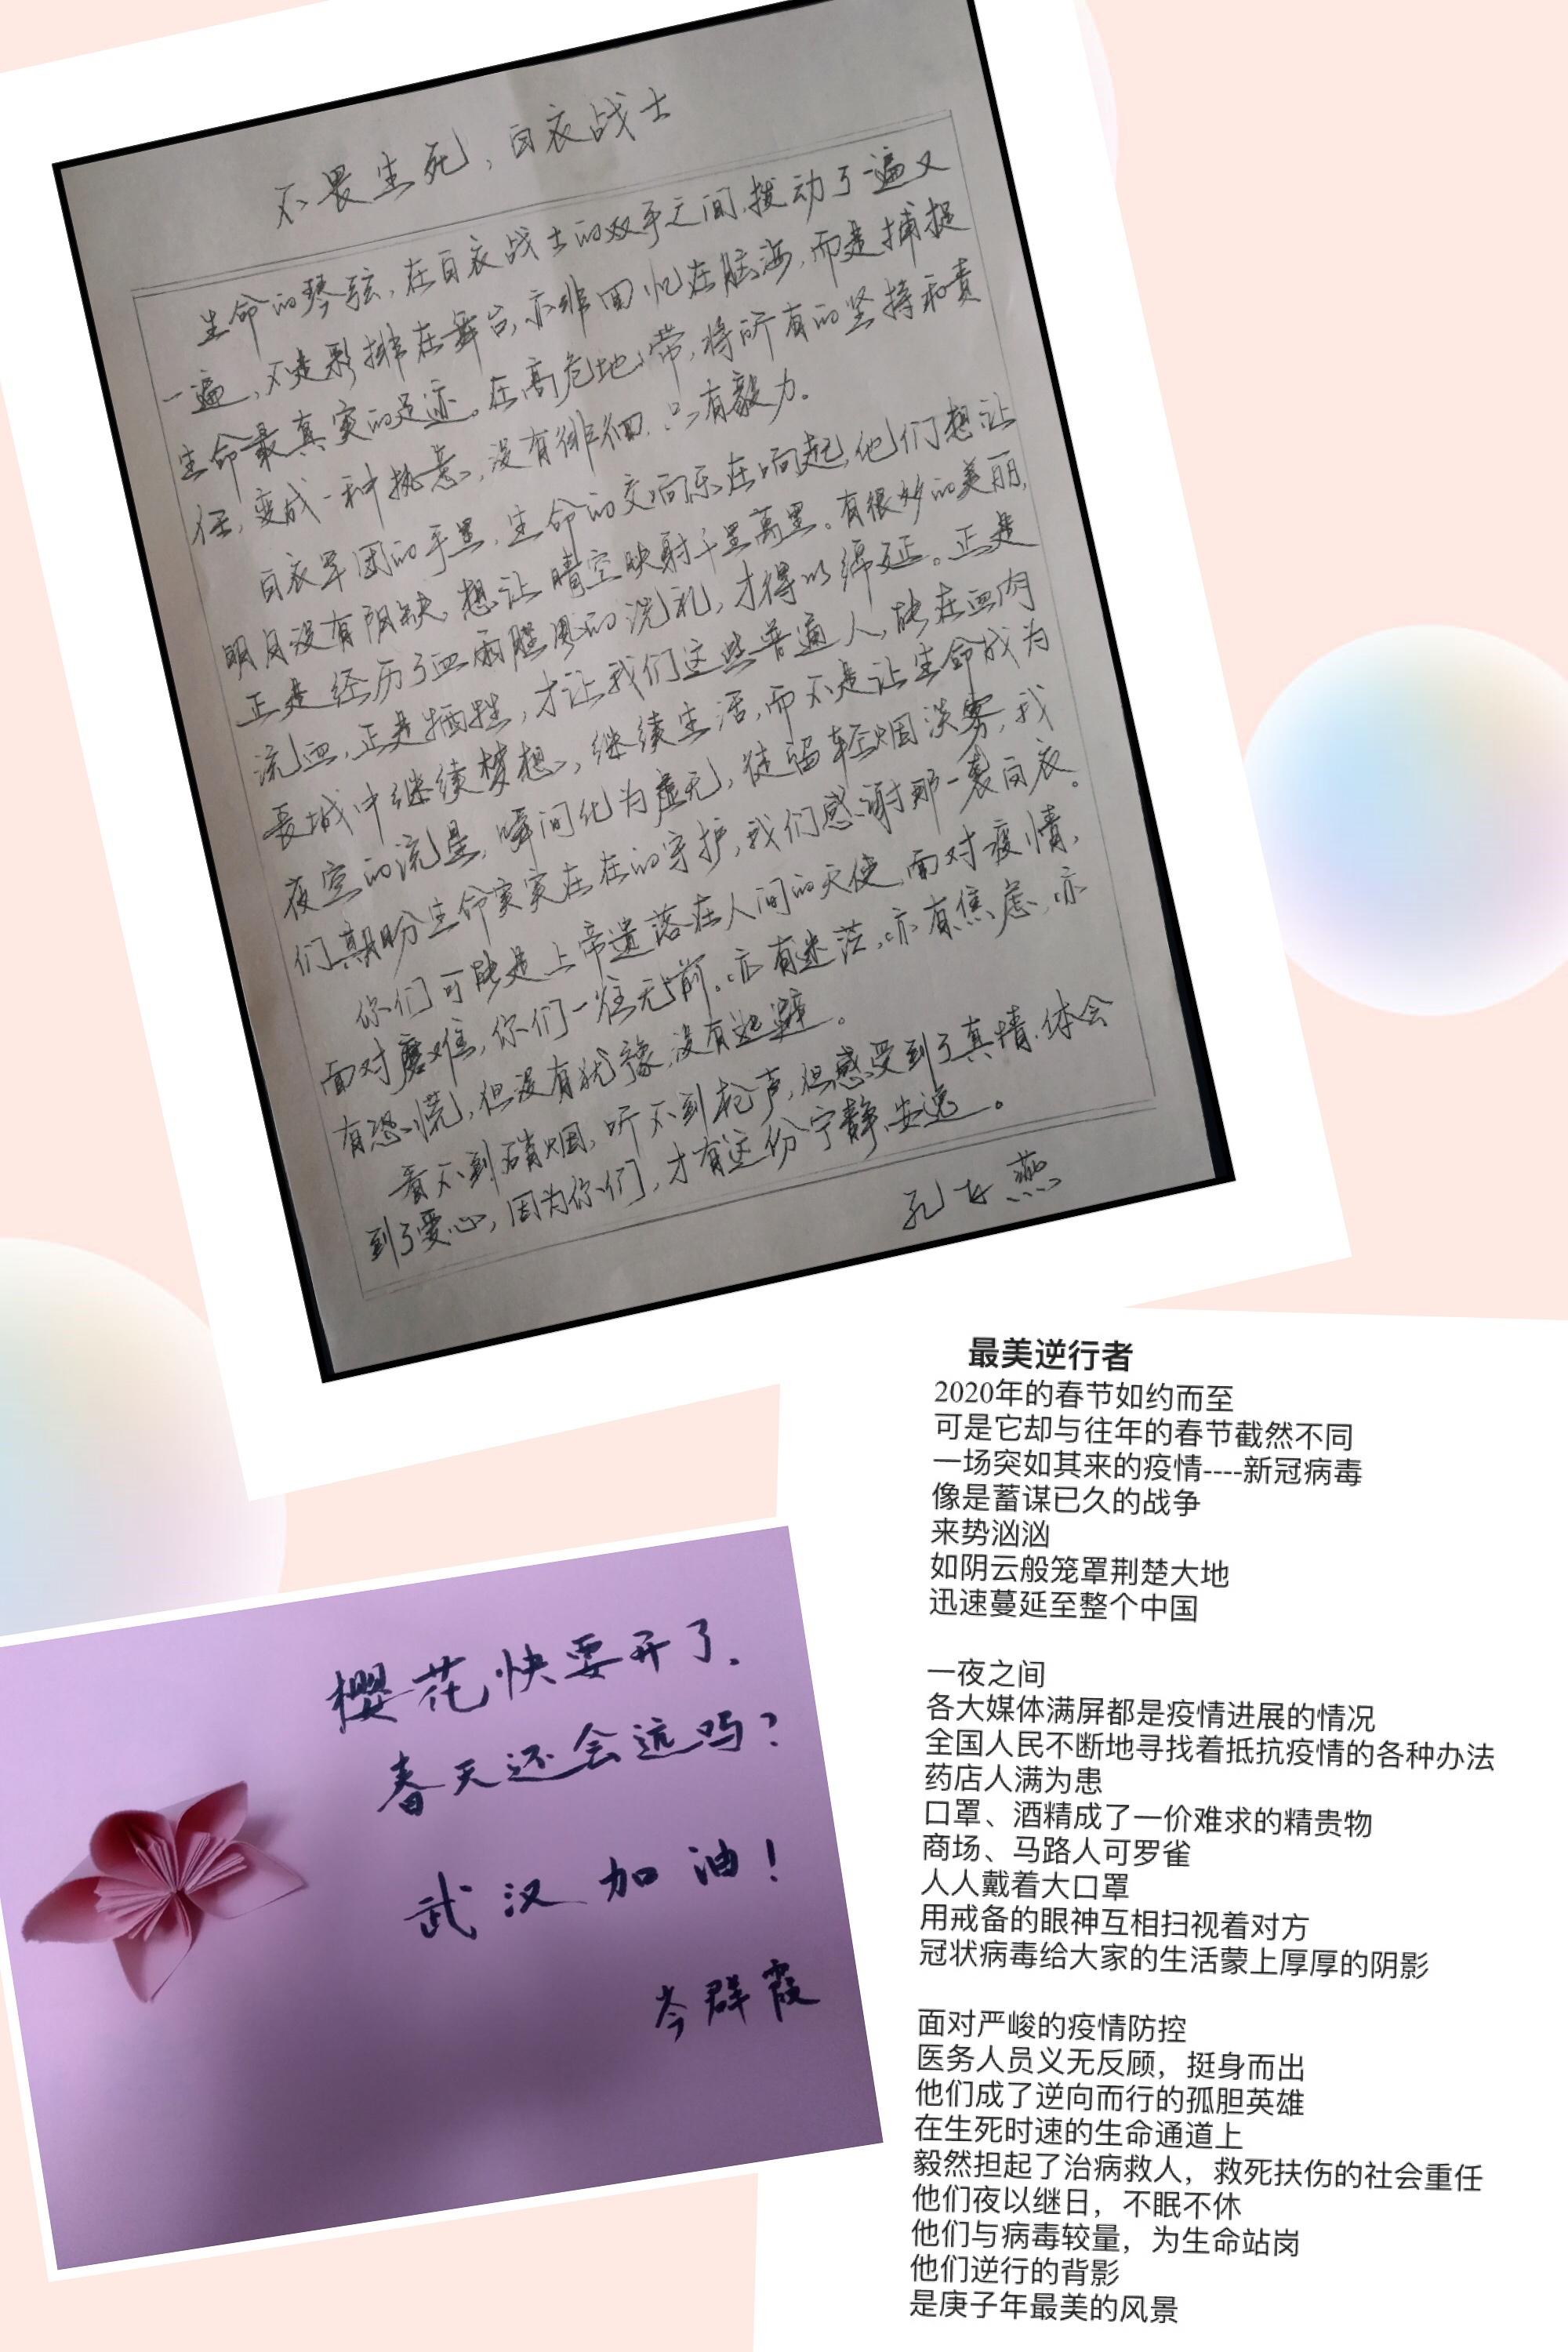 不畏生死，白衣战士
生命的琴弦，在白衣战士的双手之间，拨动了一遍又
一遍，不是彩排在舞台，亦非回忆在脑海，而是捕捉
生命最真实的足迹。在高危地带，将所有的坚持和责
任，变成一种执意，没有徘徊，只有毅力。
白衣军团的手里，生命的交响乐在响起，他们想让
明月没有阴缺，想让晴空映射千里万里。有很妙的美丽，
正是经历了血雨腥风的洗礼，才得以绵延。正是
流血，正是牺牲，才让我们这些普通人，能在血肉
长城中继续梦想，继续生活，而不是让生命成为
夜空的流星，瞬间化为虚无，徒留轻烟淡雾，我
们期盼生命实实在在的守护，我们感谢那一袭白衣。
你们可能是上帝遗落在人间的天使，面对疫情，
面对磨难，你们一往无前。亦有迷茫，亦有焦虑，亦
有恐慌，但没有犹豫，没有逃避。
看不到硝烟，听不到枪声，但感受到了真情，体会
到了爱心，因为你们，才有这份宁静、安逸。
孔女燕
最美逆行者
2020年的春节如约而至
可是它却与往年的春节截然不同
一场突如其来的疫情----新冠病毒
像是蓄谋已久的战争
来势汹汹
如阴云般笼罩荆楚大地
迅速蔓延至整个中国
一夜之间
各大媒体满屏都是疫情进展的情况
全国人民不断地寻找着抵抗疫情的各种办法
药店人满为患
口罩、酒精成了一价难求的精贵物
商场、马路人可罗雀
人人戴着大口罩
用戒备的眼神互相扫视着对方
冠状病毒给大家的生活蒙上厚厚的阴影
面对严峻的疫情防控
医务人员义无反顾，挺身而出
他们成了逆向而行的孤胆英雄
在生死时速的生命通道上
毅然担起了治病救人，救死扶伤的社会重任
他们夜以继日，不眠不休
他们与病毒较量，为生命站岗
他们逆行的背影
是庚子年最美的风景
樱花快要开了，
春天还会远吗？
武汉加油！
岑群霞